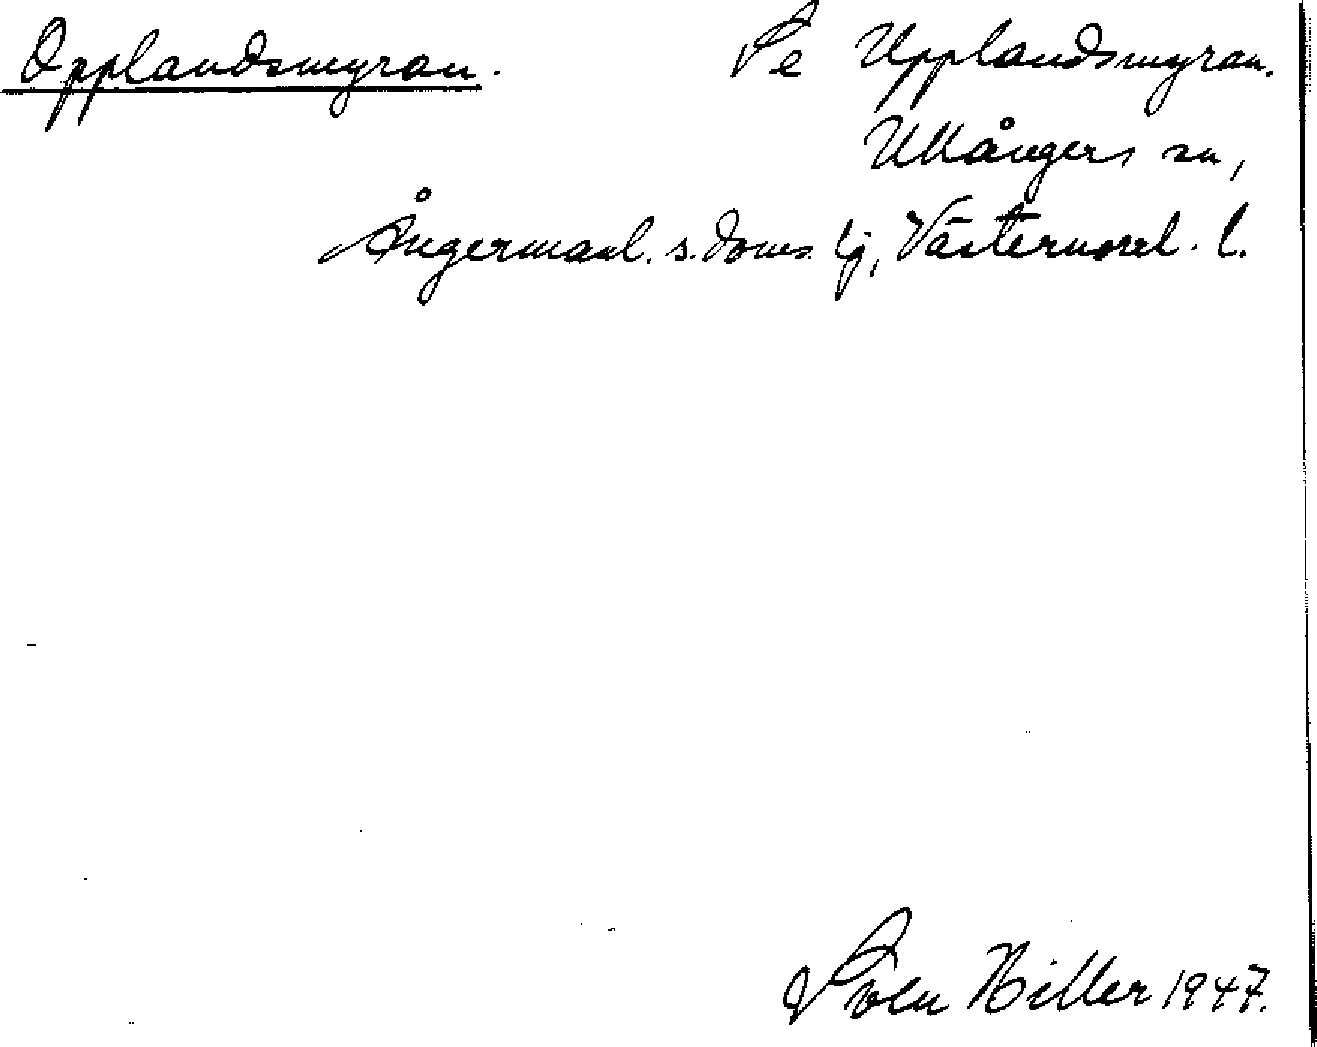 Opplandsmyran. Se Upplandsmyran.
Ullångers sn,
Ångermanl. s. doms. lj, Västernorrl. l.
Sven Hiller 1947.